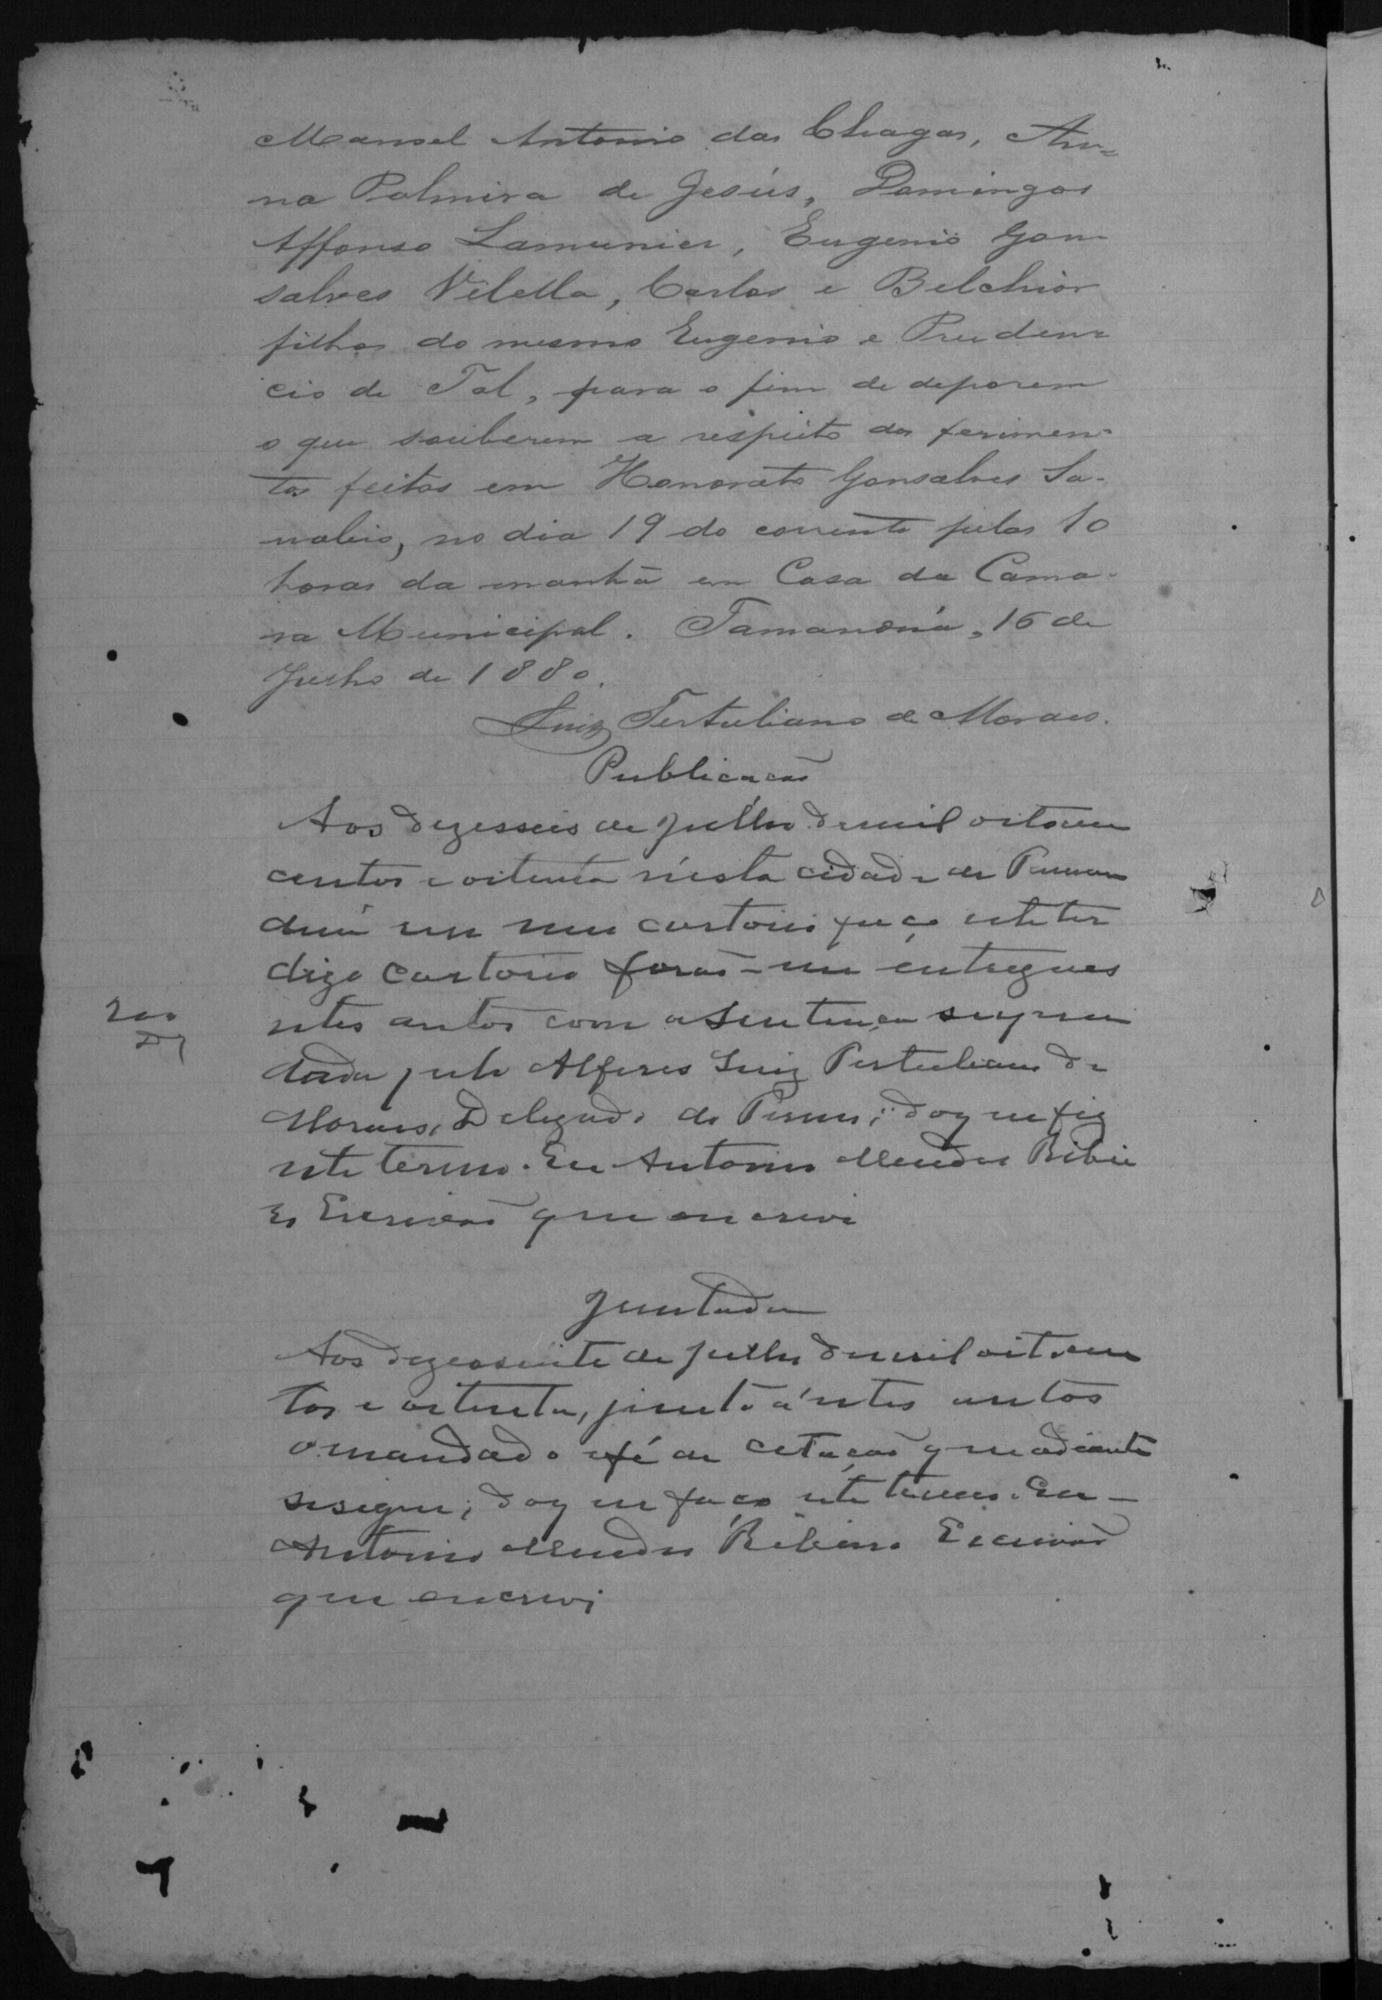 Manoel Antonio das Chagas, An-
na Palmira de Jesús, Domingos
Affonso Lamunier, Eugenio Gon-
salves Vilella, Carlos e Belchior
filhos do mesmo Eugenio e Pruden-
cio de Tal, para o fim de deporem
o que souberem a respeito dos ferimen-
tos feitos em Honorato Gonsalves Sa-
nabio, no dia 19 do corrente pelas 10
horas da manhã em Casa da Cama-
ra Municipal. Tamanduá, 16 de
Julho de 1880.
Luiz Tertuliano de Moraes.
Publicação
Aos dezesseis de Julho de mil oito
centos e oitenta n'esta cidade de Taman
duá em meu cartorio faço este ter
digo cartorio forão-me entregues
200
estes autos com a Sentença
pelo Alferes Luiz Tertuliano de
Moraes, Delegado de Termo; do que fiz
este termo. Eu Antonio Mendes Ribei
ro Escrivão que escrevi
Juntada
Aos dezessete de Julho de mil oitocen
tos e oitenta, junto á estes autos
o mandado e fé de citação que adiante
se segue; do que faço este termo. Eu-
Antonio Mendes Ribeiro Escrivão
que escrevi